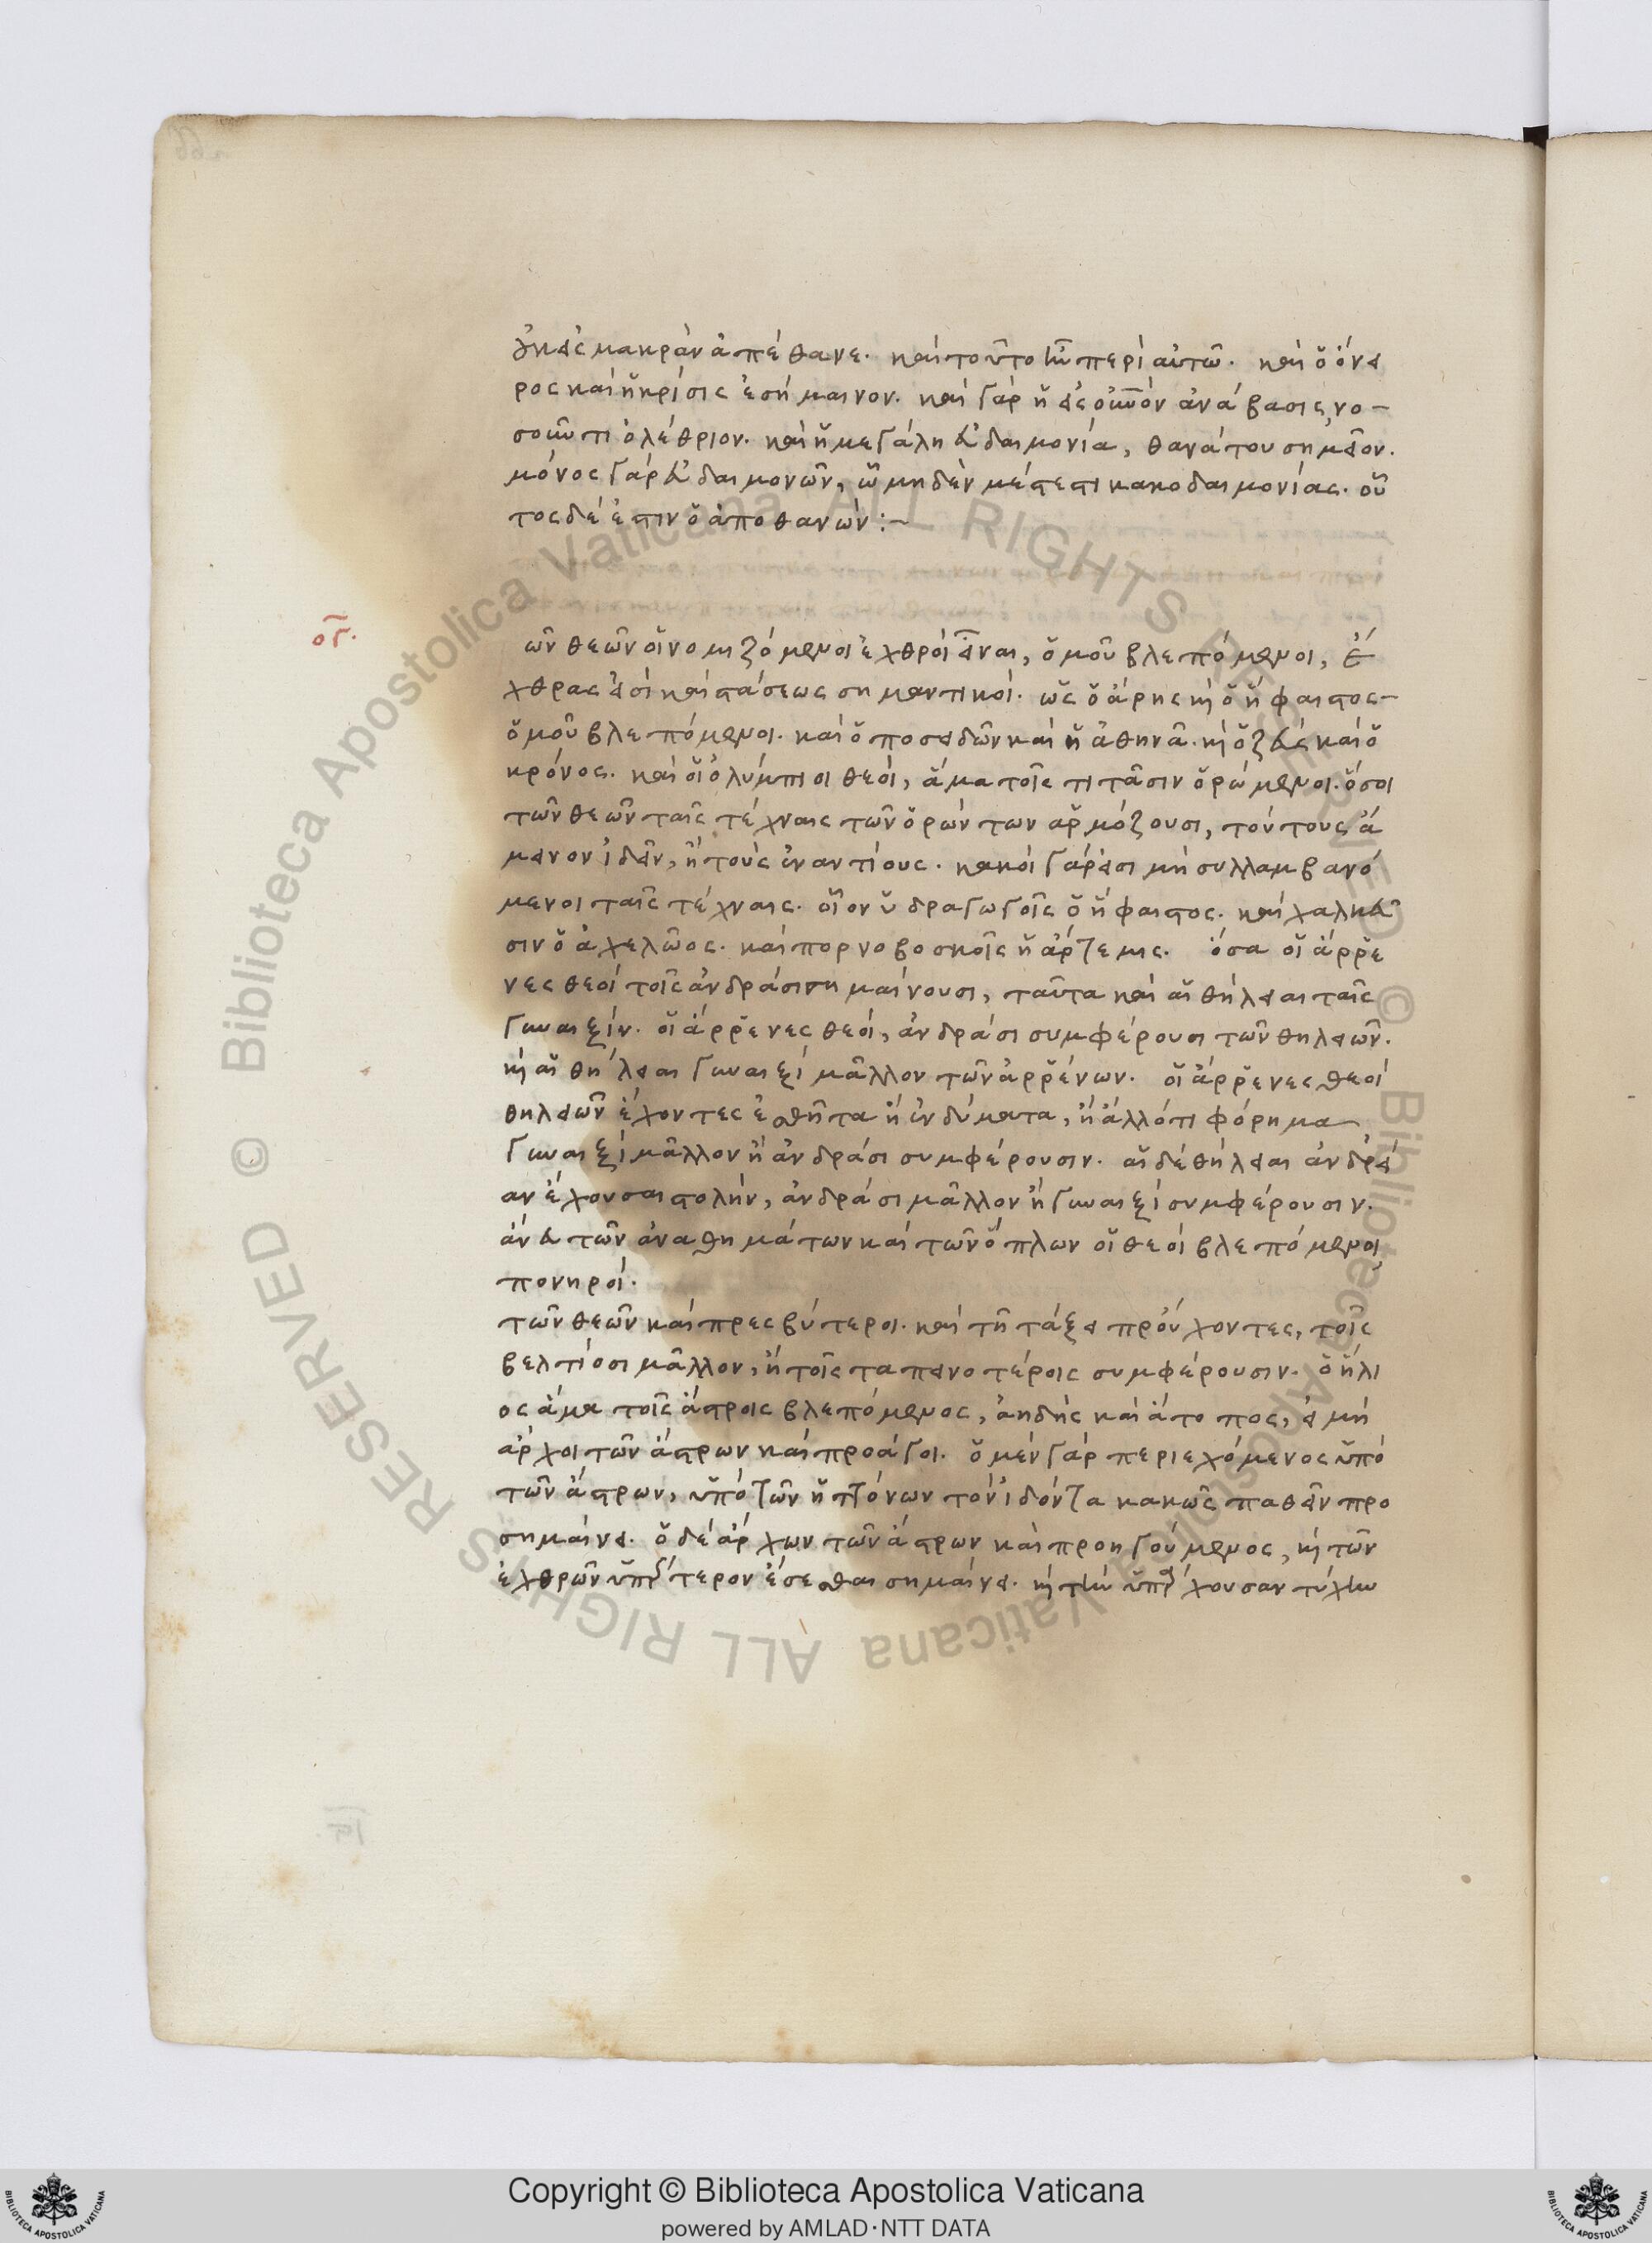 οὐκ εἰς μακρὰν ἀπέθανε. καὶ τοῦτο ἦν περὶ αὐτῶ. καὶ ὁ ὄνει
ρος καὶ ἡ κρίσις ἐσήμαινον. καὶ γὰρ ἡ εἰς οὐνὸν ἀνάβασις, νο-
σοῦντι ὀλέθριον. καὶ ἡ μεγάλη εὐδαιμονία, θανάτου σημεῖον.
μόνος γὰρ εὐδαιμονῶν, ὧ μηδὲν μέτεστι κακοδαιμονίας. οὗ
τος δέ ἐστιν ὁ ἀποθανών :-
ογ.
ῶν θεῶν οἱ νομιζόμενοι ἐχθροὶ εἶναι, ὁμοῦ βλεπόμενοι, ἔ
χθρας εἰσὶ καὶ στάσεως σημαντικοί. ὡς ὁ ἄρης κὶ ὁ ἥφαιστος-
ὁμοῦ βλεπόμενοι. καὶ ὁ ποσειδῶν καὶ ἡ ἀθηνᾶ. κὶ ὁ ζεὺς καὶ ὁ
κρόνος. καὶ οἱ ὀλύμπιοι θεοί, ἅμα τοῖς τιτᾶσιν ὁρώμενοι. ὅσοι
τῶν θεῶν ταῖς τέχναις τῶν ὁρώντων ἁρμόζουσι, τούτους ἄ
μεινον ἰδεῖν, ἢ τοὺς ἐναντίους. κακοὶ γάρ εἰσι μὴ συλλαμβανό
μενοι ταῖς τέχναις. οἷον ὑδραγωγοῖς ὁ ἥφαιστος. καὶ χαλκεῦ
σιν ὁ ἀχελῶος. καὶ πορνοβοσκοῖς ἡ ἄρτεμις. ὅσα οἱ ἄρρε
νες θεοὶ τοῖς ἀνδράσι σημαίνουσι, ταῦτα καὶ αἱ θήλειαι ταῖς
γυναιξίν. οἱ ἄρρενες θεοί, ἀνδράσι συμφέρουσι τῶν θηλειῶν.
κὶ αἱ θήλειαι γυναιξὶ μᾶλλον τῶν ἀρρένων. οἱ ἄρρενες θεοὶ
θηλειῶν ἔχοντες ἐσθῆτα ἢ ἐνδύματα, ἢ ἄλλό τι φόρημα
γυναιξὶ μᾶλλον ἢ ἀνδράσι συμφέρουσιν. αἱ δὲ θήλειαι ἀνδρεί
αν ἔχουσαι στολήν, ἀνδράσι μᾶλλον ἢ γυναιξὶ συμφέρουσιν.
ἄνευ τῶν ἀναθημάτων καὶ τῶν ὅπλων οἱ θεοὶ βλεπόμενοι
πονηροί.
τῶν θεῶν καὶ πρεσβύτεροι. καὶ τῆ τάξει προύχοντες, τοῖς
βελτίοσι μᾶλλον, ἢ τοῖς ταπεινοτέροις συμφέρουσιν. ὁ ἥλι
ος ἅμα τοῖς ἄστροις βλεπόμενος, ἀηδὴς καὶ ἄτοπος, εἰ μὴ
ἄρχοι τῶν ἄστρων καὶ προάγοι. ὁ μὲν γὰρ περιεχόμενος ὑπὸ
τῶν ἄστρων, ὑπὸ τῶν ἡττόνων τὸν ἰδόντα κακῶς παθεῖν προ
σημαίνει. ὁ δὲ ἄρχων τῶν ἄστρων καὶ προηγούμενος, κὶ τῶν
ἐχθρῶν ὑπέρτερον ἔσεσθαι σημαίνει. κὶ τὴν ὑπάρχουσαν τύχην